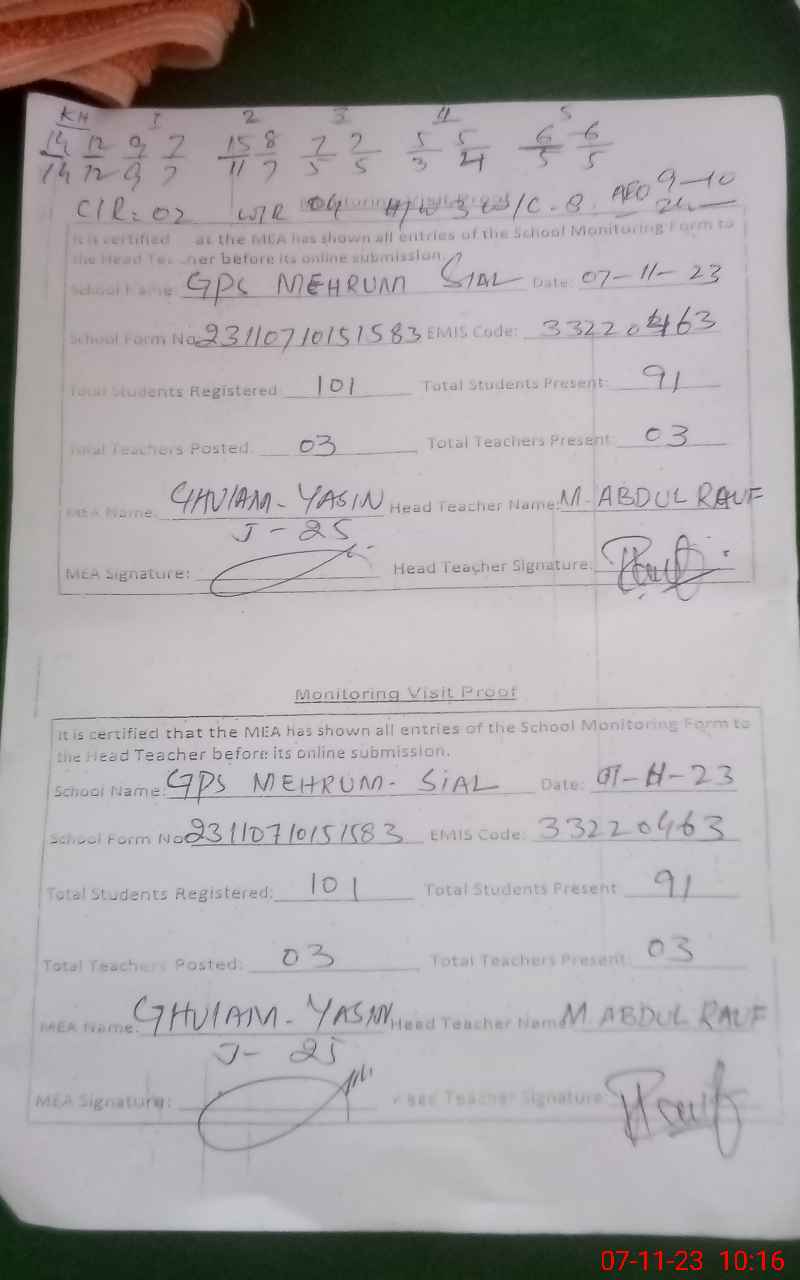 KH 1 2 3 4 5
14/14 12/12 9/9 7/7 15/11 8/7 7/5 7/5 5/3 5/4 6/5 6/5
C/R = 02 W/R 04 AEO 9-10
It is certified at the MEA has shown all entries of the School Monitoring Form to
the Head before its online submission.
School Name: GPS MEHRUM SIAL Date: 07-11-23
School Form No 23110710151583 EMIS Code: 33220463
Total Students Registered: 101 Total Students Present: 91
Total Teachers Posted: 03 Total Teachers Present: 03
MEA Name: GHULAM-YASIN Head Teacher Name: M. ABDUL RAUF
J-25
MEA Signature: Head Teacher Signature:
Monitoring Visit Proof
It is certified that the MEA has shown all entries of the School Monitoring Form to
the Head Teacher before its online submission.
School Name: GPS MEHRUM-SIAL Date: 07-11-23
School Form No 23110710151583 EMIS Code: 33220463
Total Students Registered: 101 Total Students Present 91
Total Teachers Posted: 03 Total Teachers Present: 03
MEA Name: GHULAM-YASIN Head Teacher Name M. ABDUL RAUF
J-25
MEA Signature: Teacher Signature:
07-11-23 10:16